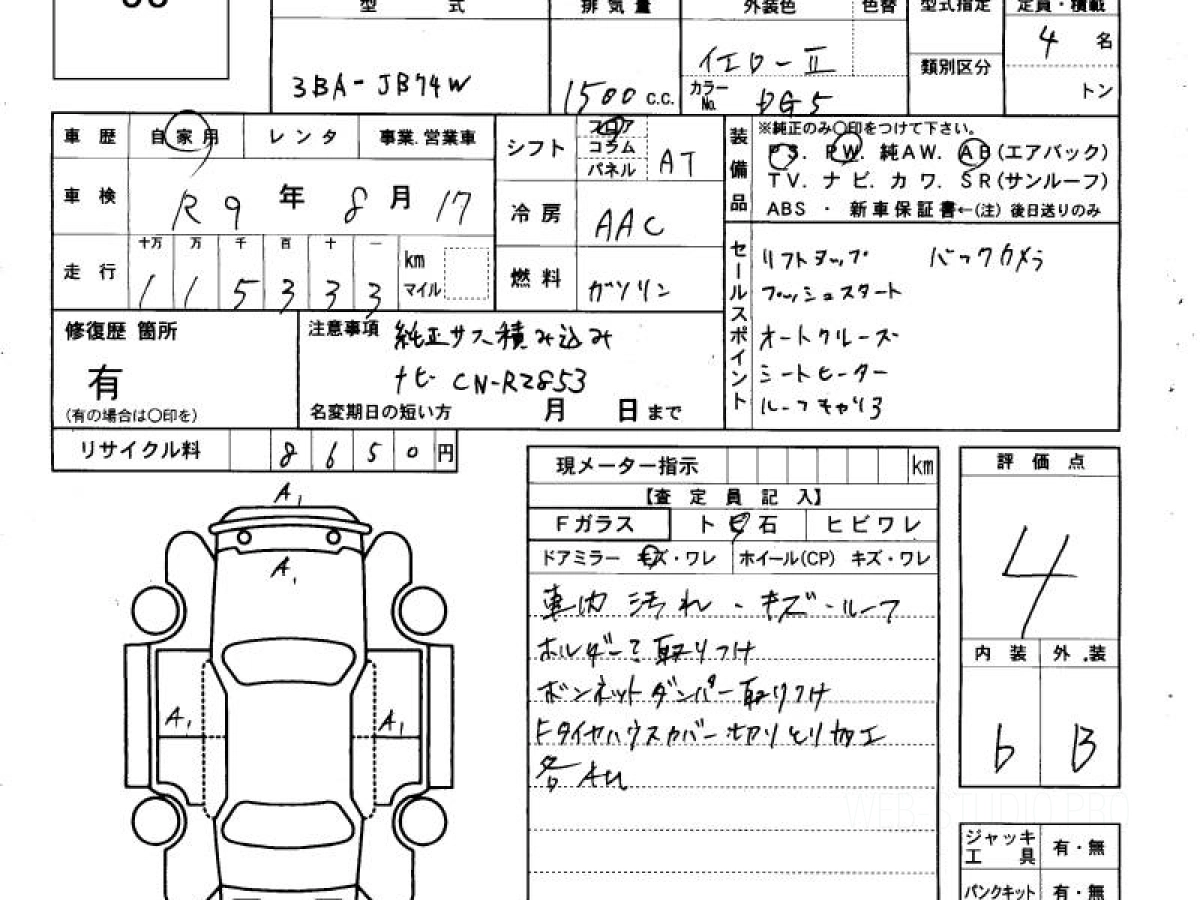 型 式
排 気 量
外装色
色替
型式指定
定員・積載
3BA-JB74W
1500 c.c.
イエローⅡ
カラーNo. DG5
類別区分
4 名
トン
車 歴
自 家 用
レ ン タ
事業.営業車
シフト
フロア
コラム
パネル
AT
装備品
※純正のみ〇印をつけて下さい。
PS. PW. 純AW. AB(エアバック)
TV. ナビ. カワ. SR(サンルーフ)
ABS ・ 新車保証書←(注) 後日送りのみ
車 検
R9 年 8 月 17
冷 房
AAC
走 行
十万 万 千 百 十 一
1 1 5 3 3 3
km
マイル
燃 料
ガソリン
セールスポイント
リフトアップ バックカメラ
プッシュスタート
オートクルーズ
シートヒーター
ルーフキャリア
修復歴 箇所
有
(有の場合は〇印を)
注意事項 純正サス積み込み
ナビ CN-RZ853
名変期日の短い方 月 日 まで
リサイクル料
8 6 5 0 円
現メーター指示 km
【査 定 員 記 入】
Fガラス
ト ビ 石
ヒ ビ ワ レ
ドアミラー キズ・ワレ
ホイール(CP) キズ・ワレ
車内 汚れ・キズ・ルーフ
ホルダー 取りつけ
ボンネットダンパー取りつけ
Fタイヤハウスカバー切りとり加工
各AU
評 価 点
4
内 装
外 装
b
B
A1
A1
A1
A1
ジャッキ
工 具
有・無
パンクキット
有・無
WEB STUDIO PRO